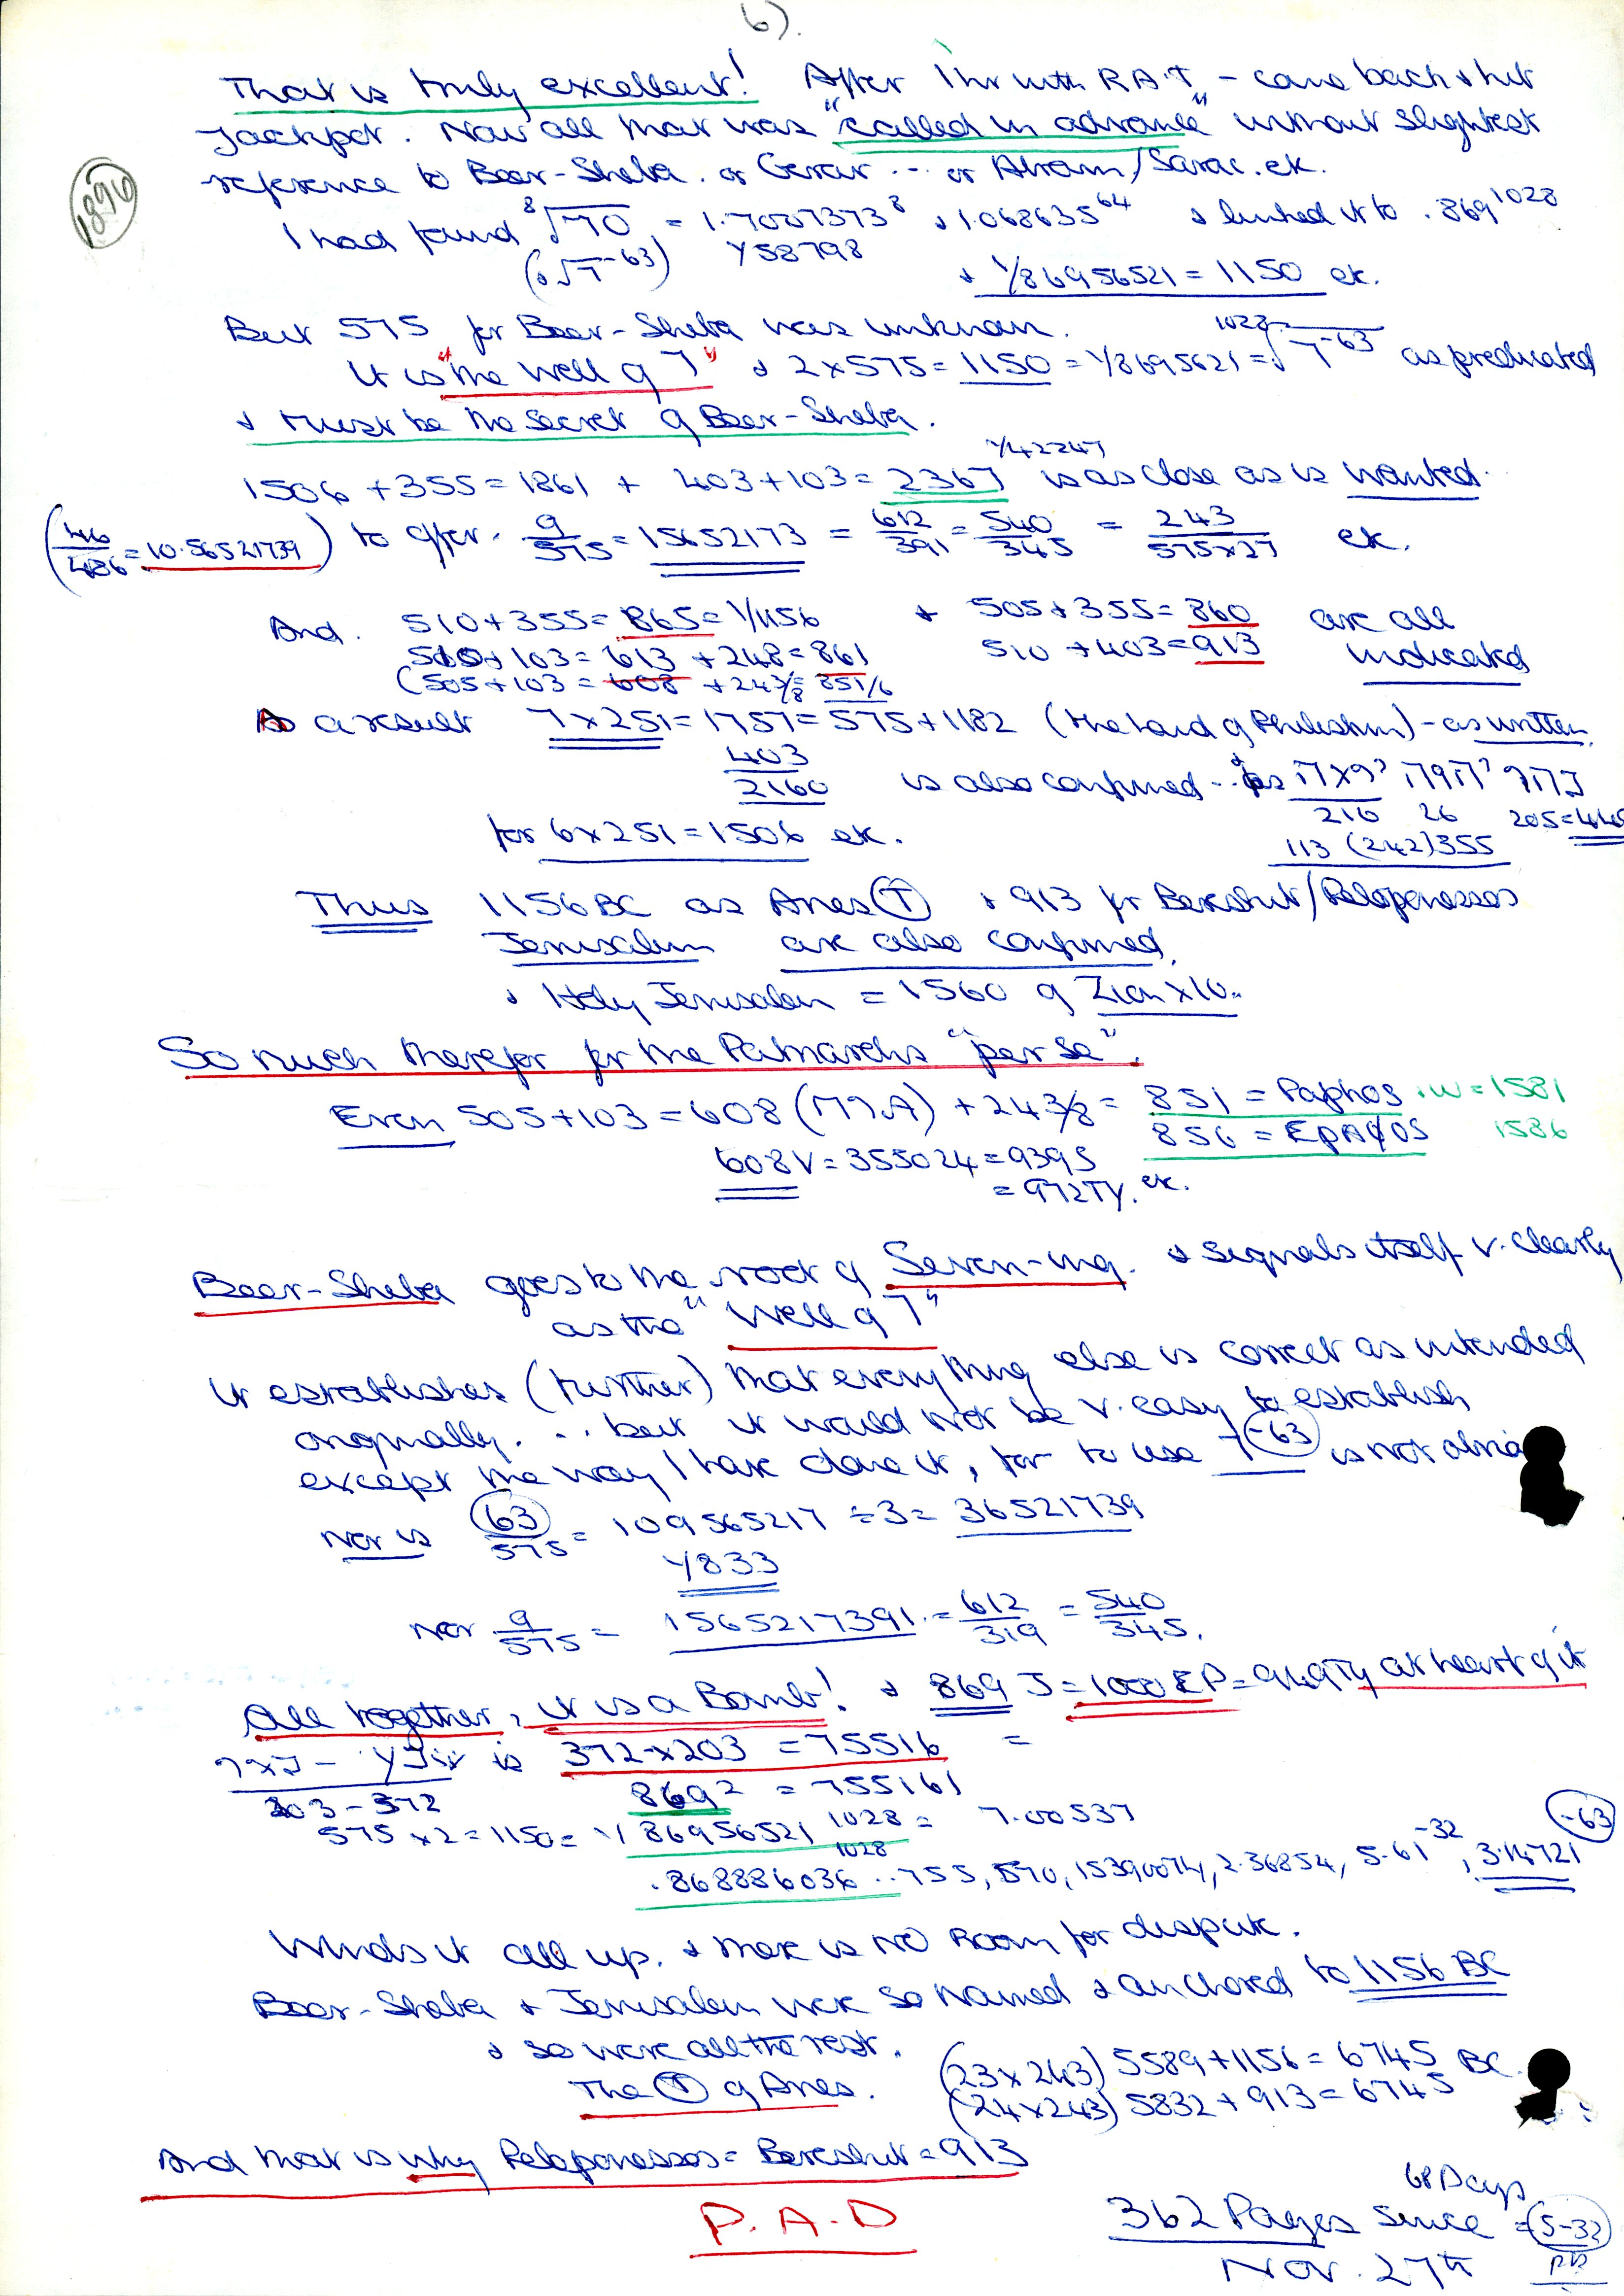 6).
That is truly excellent! After 1 hr with R.A.T - came back & hit
Jackpot. Now all that was "called in advance" without slightest
reference to Beer-Sheba. or Gerar ... or Abram/Sarai. etc.
1896
I had found ⁸√70 = 1.7007373⁸ & 1.068635⁶⁴ & linked it to .869¹⁰²⁸
Y58798
& 1/86956521 = 1150 etc.
But 575 for Beer-Sheba was unknown.
It is "the Well of 7" & 2x575 = 1150 = 1/8695621 = ¹⁰²⁸√7⁻⁶³ as predicated
& must be the secret of Beer-Sheba.
1506 + 355 = 1861 + 403 + 103 = 2367 1/42247 is as close as is wanted.
to offer. 9/575 = 15652173 = 612/391 = 540/345 = 243/575x27 etc.
(/486 = 10.56521739)
And. 510 + 355 = 865 = 1/1156 & 505 + 355 = 860 are all
510 + 103 = 613 + 248 = 861 510 + 403 = 913 indicated
(505 + 103 = 608 + 243/8 = 851/6
As a result 7x251 = 1757 = 575 + 1182 (the land of Philistim) - as written.
403/2160 is also confirmed
216 26 205 = 446
for 6x251 = 1506 etc.
113 (242) 355
Thus 1156 BC as Aries (T) & 913 for Bereshit/Peloponessos
Jerusalem are also confirmed.
& Holy Jerusalem = 1560 of Zion x 10.
So much therefor for the Patriarchs "per se".
Even 505 + 103 = 608 + 243/8 = 851 = Paphos . w = 1581
856 = EPAφOS 1586
608 V = 355024 = 9395
= 972TY. etc.
Beer-Sheba goes to the root of Seven-ing. & signals itself v. clearly
as the "Well of 7"
It establishes (further) that everything else is correct as intended
originally. ... but it would not be v. easy to establish
except the way I have done it, for to use 7⁻⁶³ is not
Nor is 63/575 = 109565217 ÷ 3 = 36521739
Y833
nor 9/575 = 1565217391 = 612/319 = 540/345.
All together, it is a Bomb! & 869 J = 1000 EP = at heart of it
is 372 x 203 = 75516 =
203 - 372 869² = 755161
575 x 2 = 1150 = 1/86956521 ¹⁰²⁸ = 7.00537
.868886036¹⁰²⁸ .. 755, 570, 15390074, 2.36854, 5.61⁻³², 3.14721⁻⁶³
Winds it all up. & there is NO Room for dispute.
Beer-Sheba & Jerusalem were so named & anchored to 1156 BC
& so were all the rest.
The (T) of Aries.
(23 x 243) 5589 + 1156 = 6745 BC.
(24 x 243) 5832 + 913 = 6745
And that is why Peloponessos = Bereshit = 913
P.A.D
68 Days
362 Pages since = (5-32)
Nov. 27th